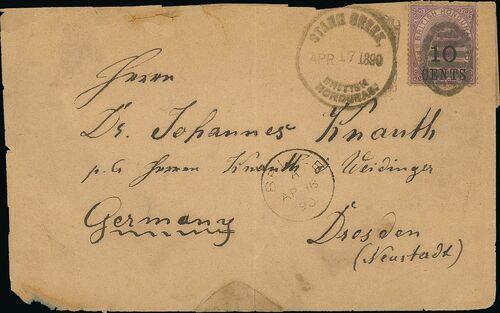 STANN CREEK,
APR 17 1890
BRITISH
HONDURAS.
BRITISH HONDURAS
10
CENTS
Herrn
Dr. Johannes Knauth
p. a. Herren Knauth Weidinger
Germany
Dresden
(Neustadt)
B
A
AP 18
90